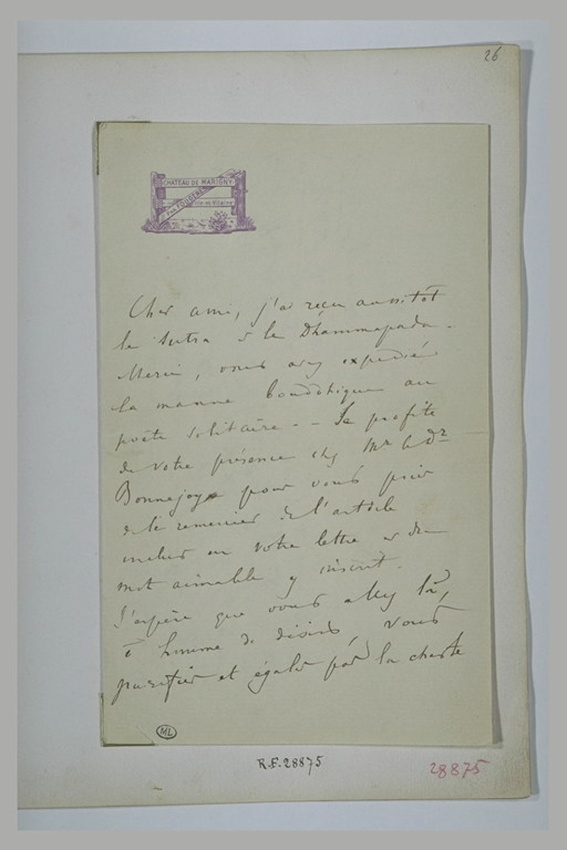 26
CHATEAU DE MARIGNY
PAR FOUGÈRES
Ille-et-Vilaine
Cher ami, j'ai reçu aussitôt
le Sutra & le Dhammapada.
Merci, vous avez expédié
la manne bouddhique au
poète solitaire. – Je profite
de votre présence chez Mr le Dr
Bonnejoy pour vous prier
de le remercier de l'article
inclus en votre lettre et du
mot aimable y inscrit.
J'espère que vous allez là,
ô homme de désirs, vous
purifier et égaler par la chaste
ML
R.F. 28875
28875